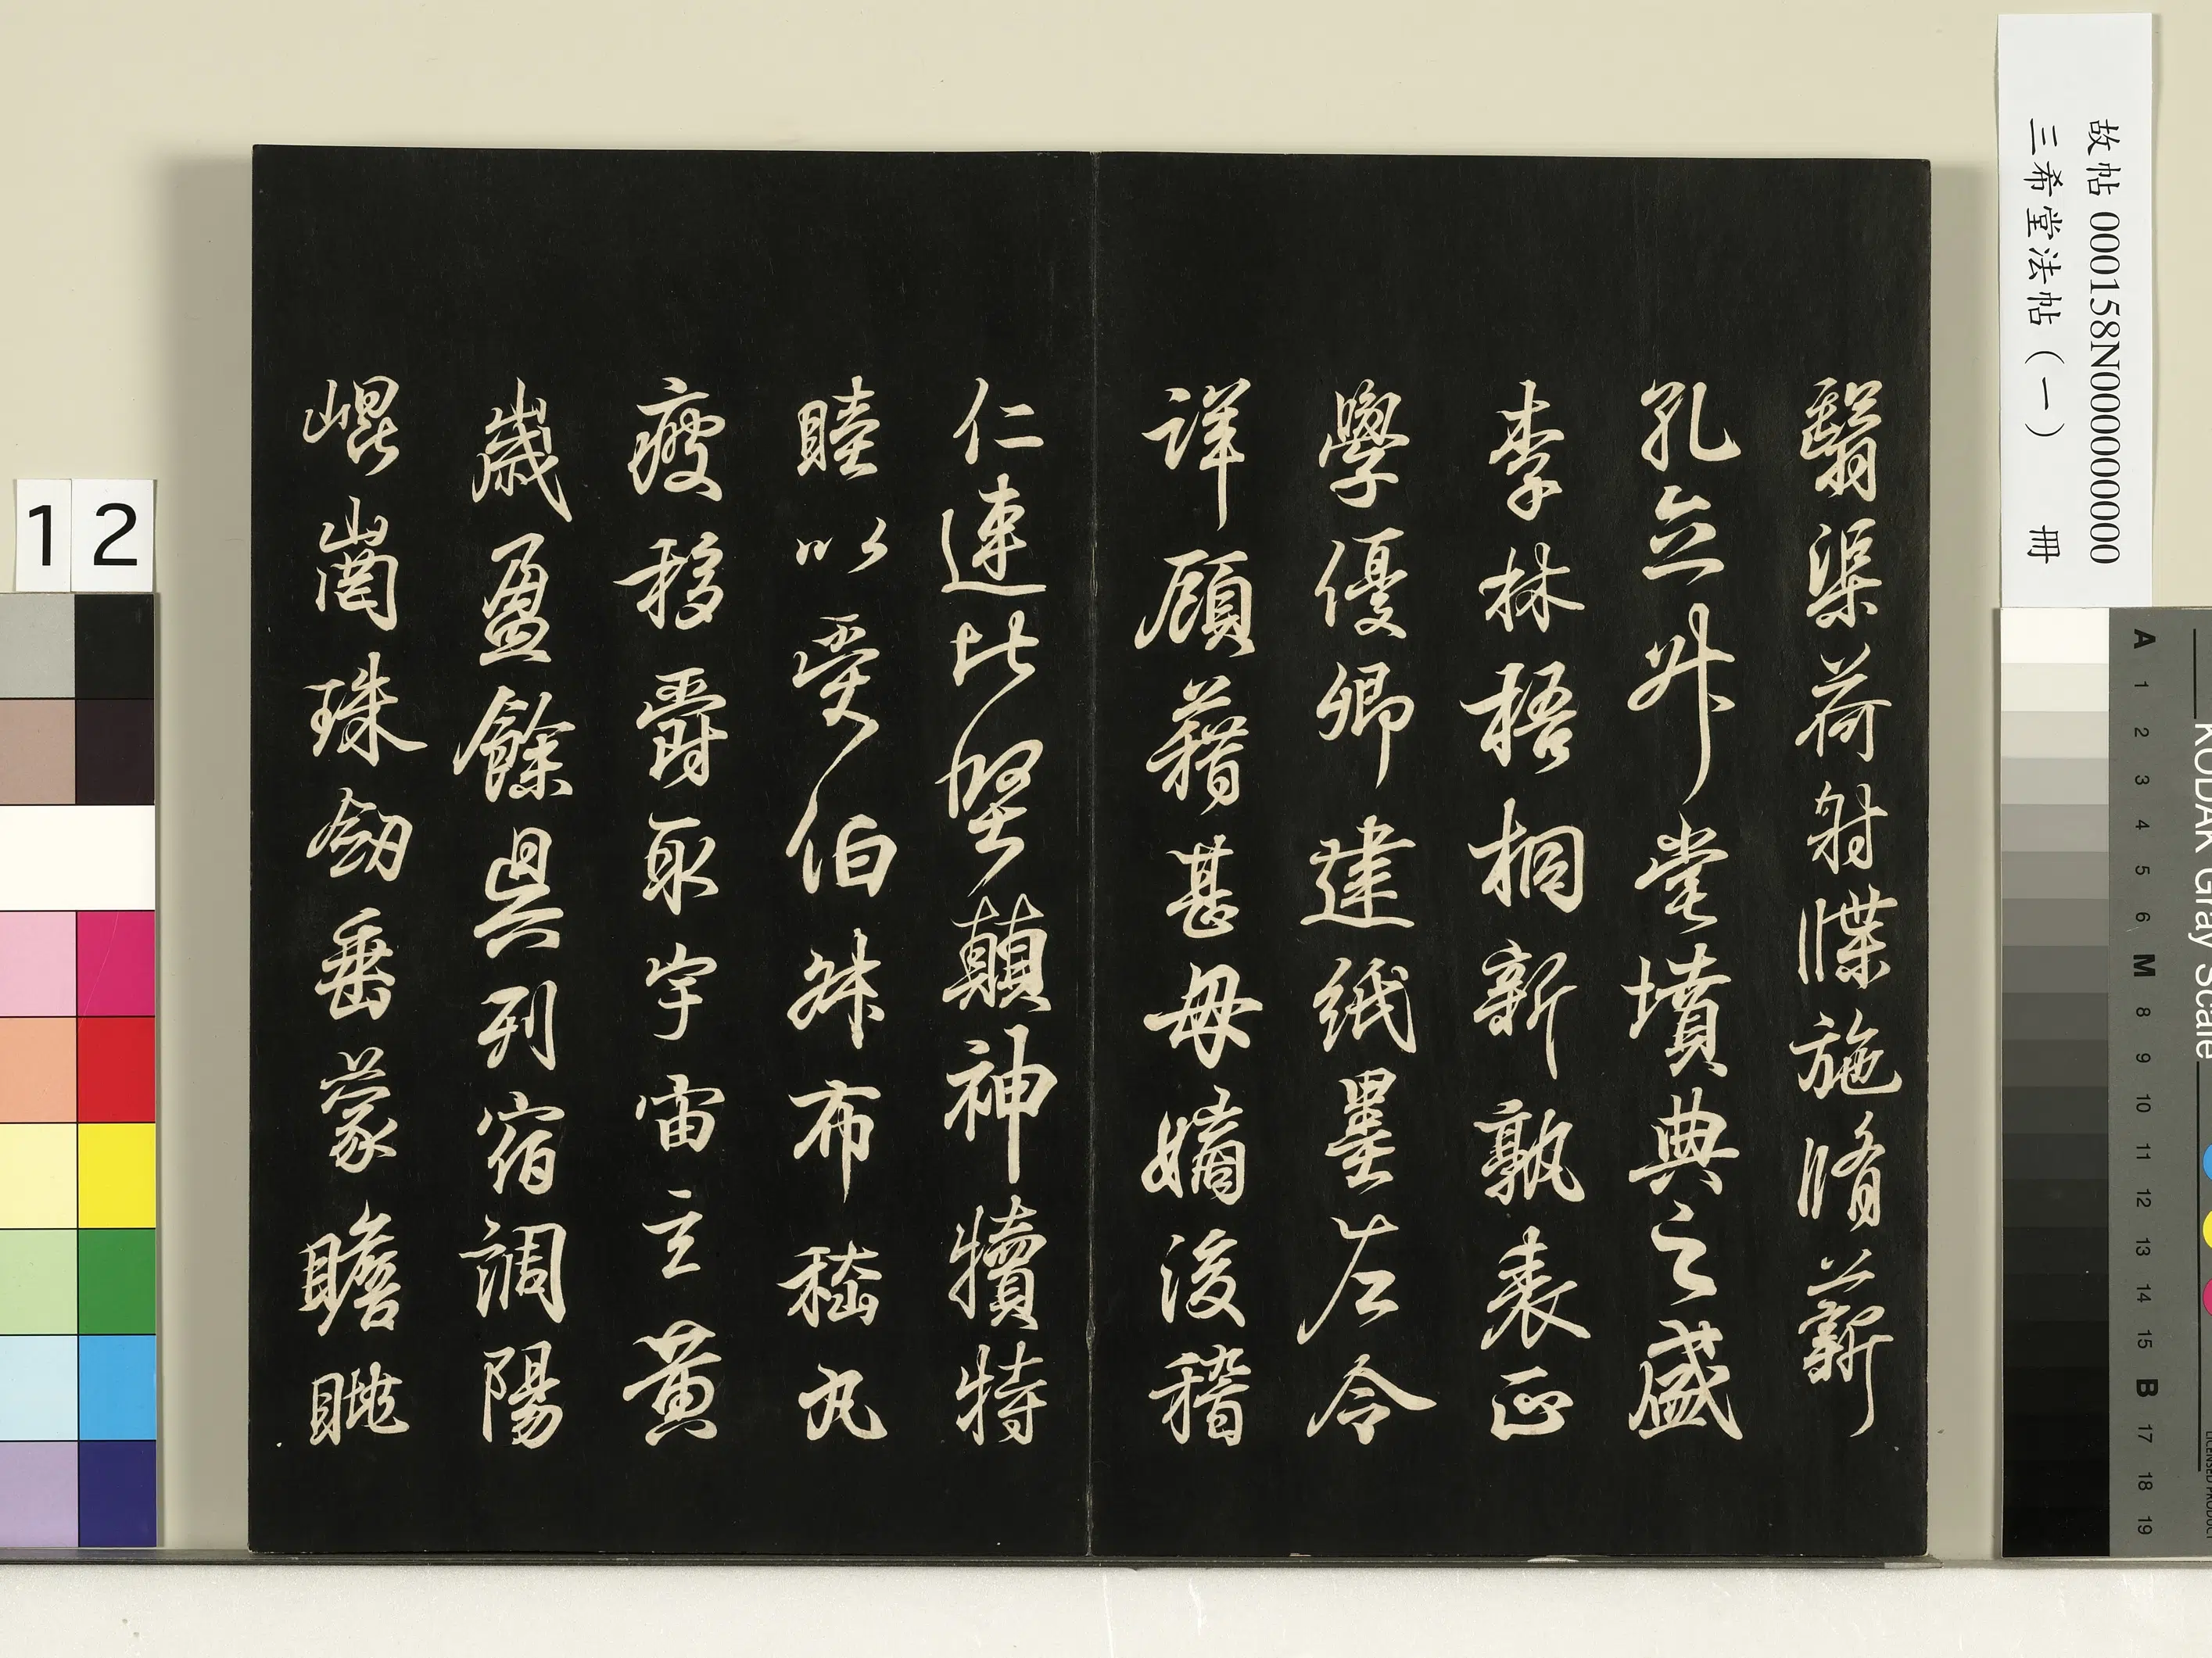 故帖 000158N000000000
三希堂法帖（一） 冊
翳渠荷射牒施脩薪
孔立升堂墳典之盛
李林梧桐新孰表正
學優卿建紙墨左令
詳顧藉甚毋嫡後稽
仁連比堅顛神犢特
睦以受伯叔布嵇丸
疲移爵取宇宙玄黃
歲盈餘具列宿調陽
崐崗珠劒垂蒙瞻眺
12
KODAK Gray Scale
A 1 2 3 4 5 6 M 8 9 10 11 12 13 14 15 B 17 18 19